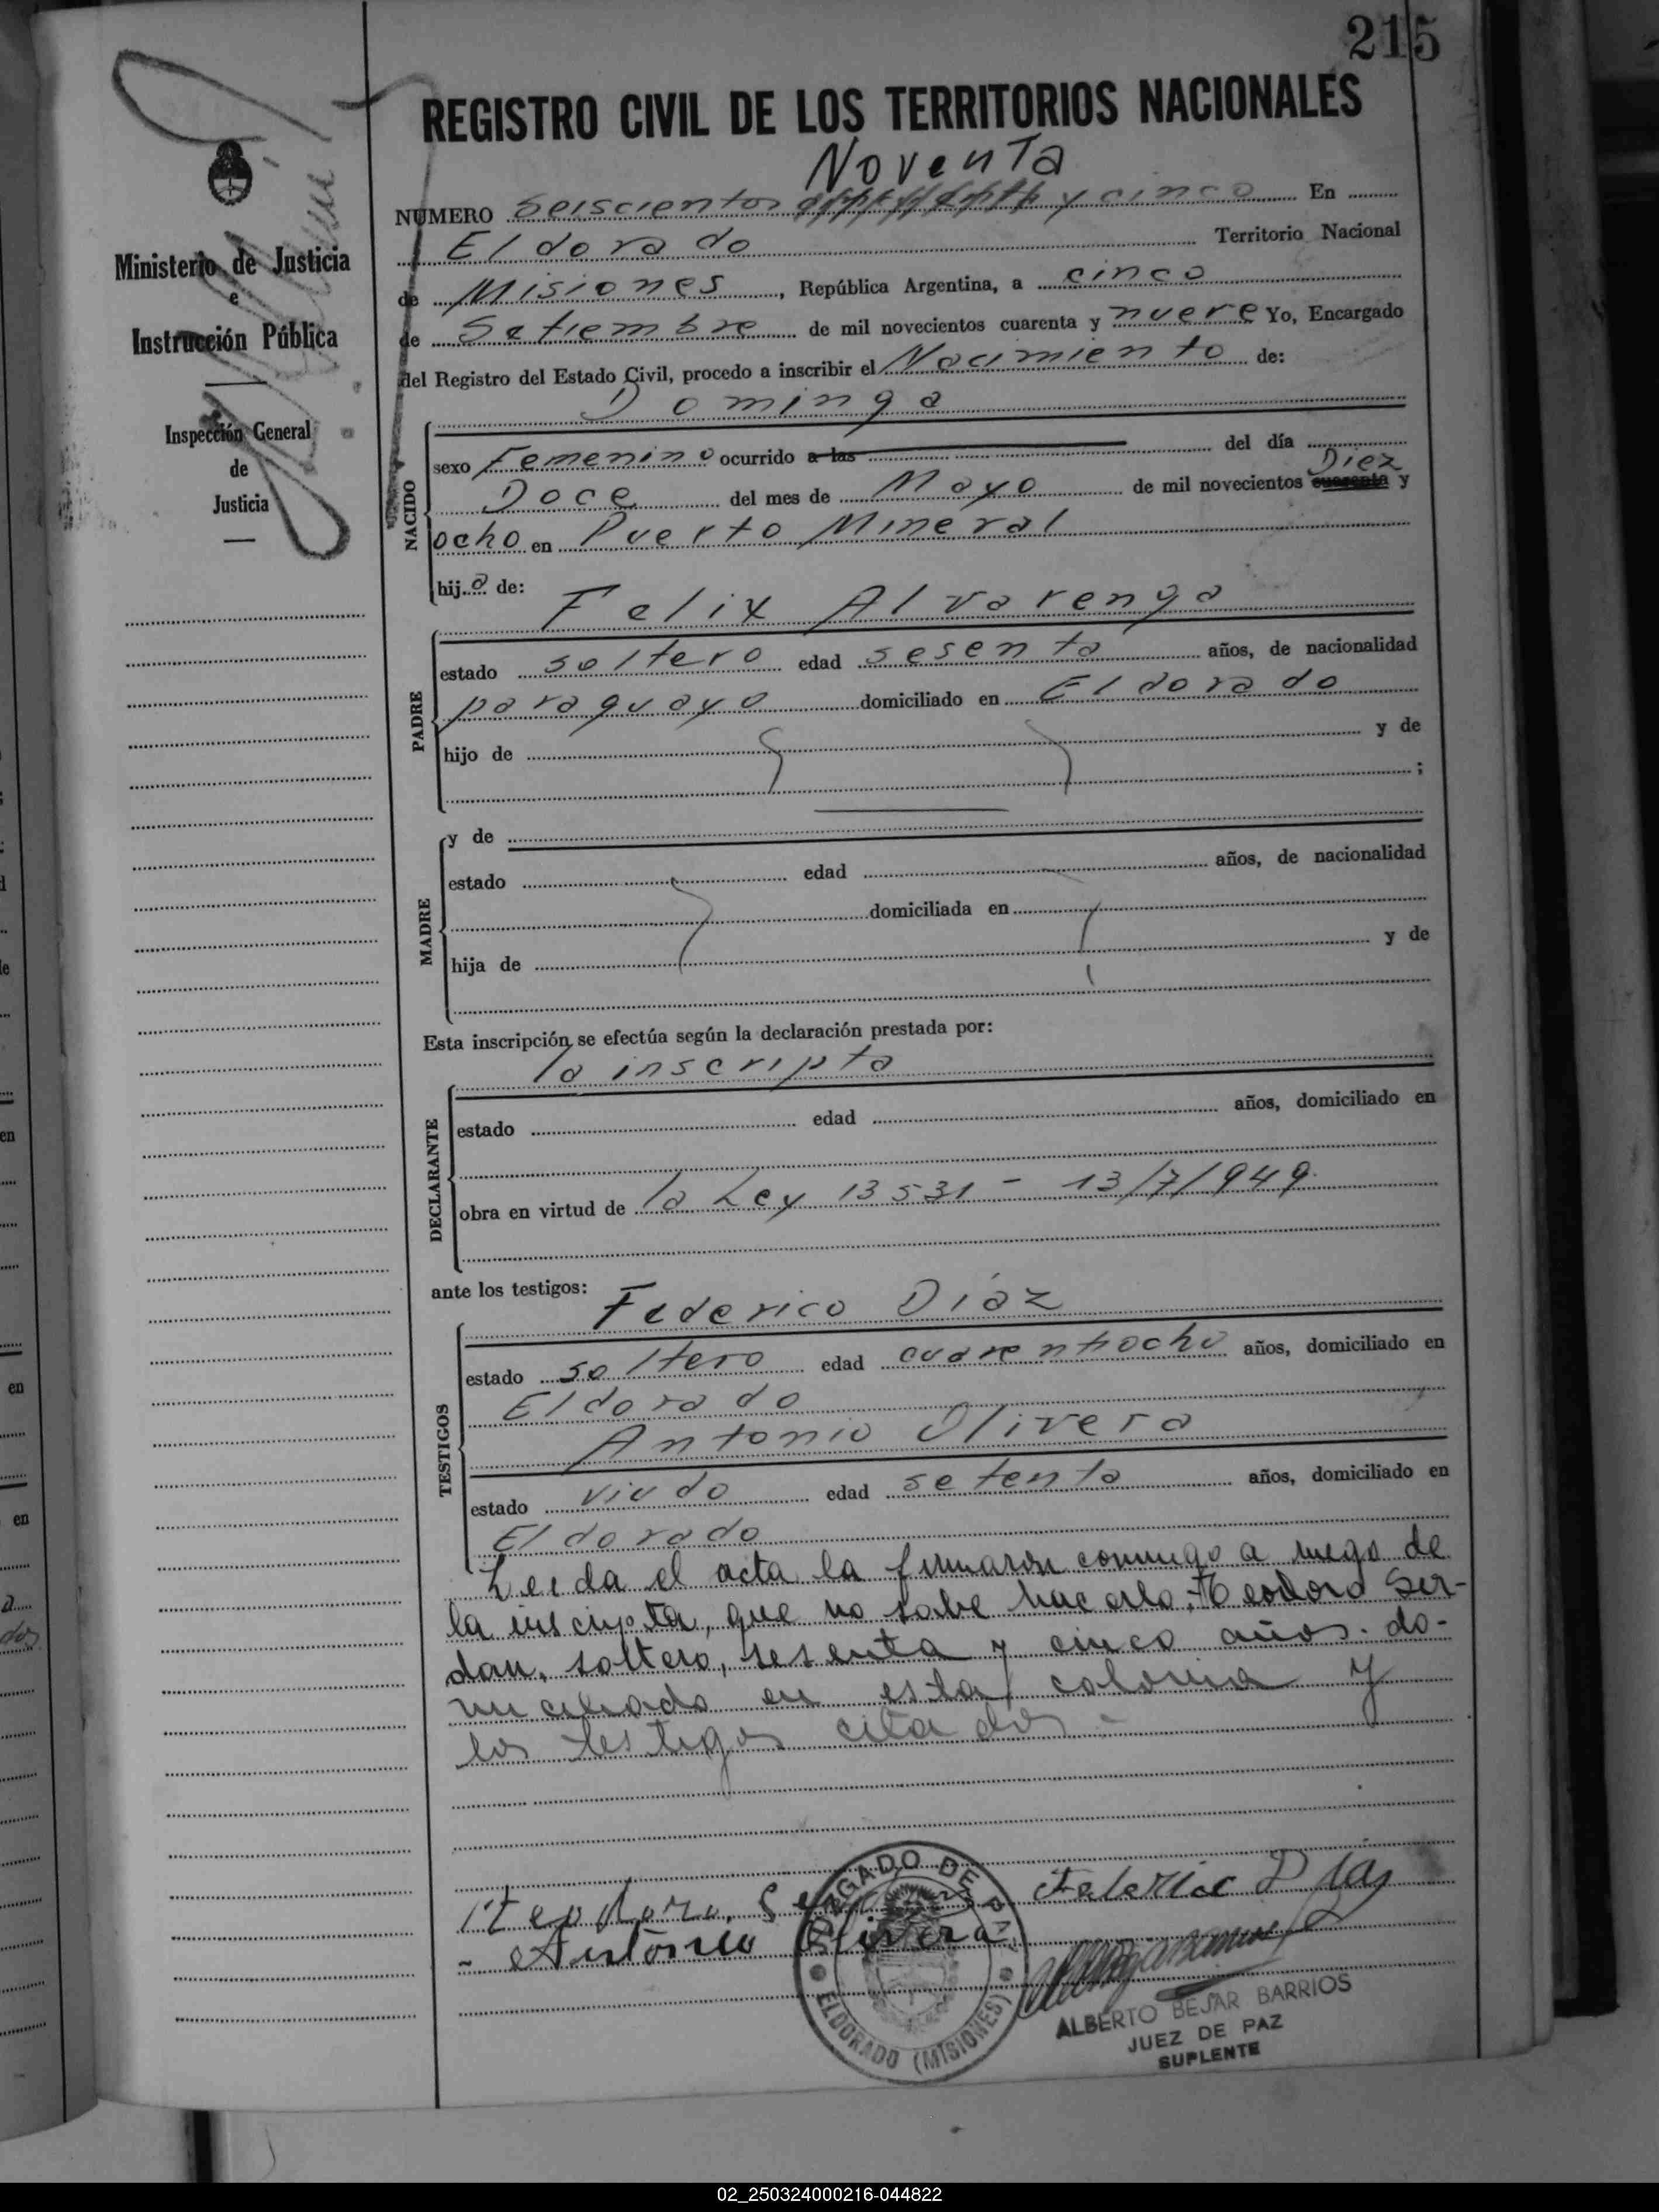 215
REGISTRO CIVIL DE LOS TERRITORIOS NACIONALES
Noventa
NUMERO Seiscientos y cinco En
Eldorado Territorio Nacional
de Misiones, República Argentina, a cinco
de Setiembre de mil novecientos cuarenta y nueve Yo, Encargado
del Registro del Estado Civil, procedo a inscribir el Nacimiento de:
Ministerio de Justicia
e
Instrucción Pública
Inspección General
de
Justicia
NACIDO
Dominga
sexo Femenino ocurrido a las del día
Diez
Doce del mes de Mayo de mil novecientos cuarenta y
ocho en Puerto Mineral
hija de:
PADRE
Felix Alvarenga
estado soltero edad sesenta años, de nacionalidad
paraguayo domiciliado en Eldorado
hijo de y de
;
MADRE
y de
estado edad años, de nacionalidad
domiciliada en
hija de y de
Esta inscripción se efectúa según la declaración prestada por:
DECLARANTE
la inscripta
estado edad años, domiciliado en
obra en virtud de la Ley 13531 - 13/7/949.
ante los testigos:
TESTIGOS
Federico Díaz
estado soltero edad cuarentiocho años, domiciliado en
Eldorado
Antonio Olivera
estado viudo edad setenta años, domiciliado en
Eldorado
Leida el acta la firmaron conmigo a ruego de
la inscripta, que no sabe hacerlo, Teodoro Ser-
dan, soltero, sesenta y cinco años. do-
miciliado en esta colonia y
los testigos citados.-
Teodoro Federico Díaz
- Antonio Olivera
JUZGADO DE PAZ
ELDORADO (MISIONES)
ALBERTO BEJAR BARRIOS
JUEZ DE PAZ
SUPLENTE
02_250324000216-044822